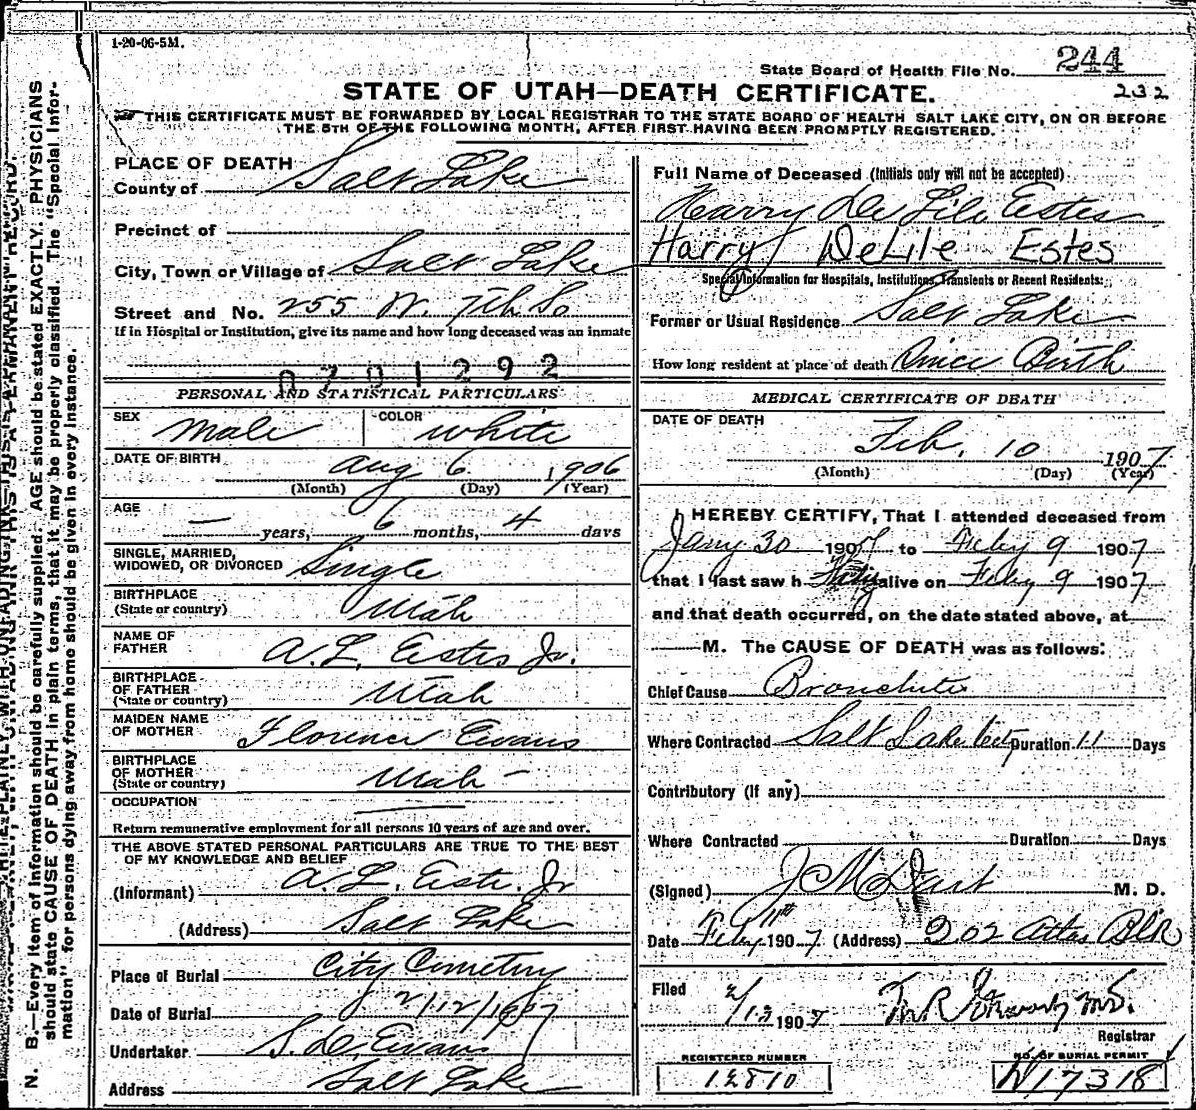 1-20-06-5M.
State Board of Health File No. 244
232
STATE OF UTAH—DEATH CERTIFICATE.
THIS CERTIFICATE MUST BE FORWARDED BY LOCAL REGISTRAR TO THE STATE BOARD OF HEALTH SALT LAKE CITY, ON OR BEFORE
THE 5TH OF THE FOLLOWING MONTH, AFTER FIRST HAVING BEEN PROMPTLY REGISTERED.
PLACE OF DEATH
County of Salt Lake
Precinct of
City, Town or Village of Salt Lake
Street and No. 255 W. 7th So
If in Hospital or Institution, give its name and how long deceased was an inmate
0701292
PERSONAL AND STATISTICAL PARTICULARS
SEX Male COLOR White
DATE OF BIRTH Aug 6 1906
(Month) (Day) (Year)
AGE — years, 6 months, 4 days
SINGLE, MARRIED,
WIDOWED, OR DIVORCED Single
BIRTHPLACE
(State or country) Utah
NAME OF
FATHER A. L. Estes Jr.
BIRTHPLACE
OF FATHER
(State or country) Utah
MAIDEN NAME
OF MOTHER Florence Evans
BIRTHPLACE
OF MOTHER
(State or country) Utah –
OCCUPATION
Return remunerative employment for all persons 10 years of age and over.
THE ABOVE STATED PERSONAL PARTICULARS ARE TRUE TO THE BEST
OF MY KNOWLEDGE AND BELIEF
(Informant) A. L. Este. Jr
(Address) Salt Lake
Place of Burial City Cemetry
Date of Burial 2/12/1907
Undertaker S. D. Evans
Address Salt Lake
Full Name of Deceased (Initials only will not be accepted)
Harry De Lile Estes
Harry DeLile Estes
Special Information for Hospitals, Institutions, Transients or Recent Residents:
Former or Usual Residence Salt Lake
How long resident at place of death Since Birth
MEDICAL CERTIFICATE OF DEATH
DATE OF DEATH
Feb. 10 1907
(Month) (Day) (Year)
I HEREBY CERTIFY, That I attended deceased from
Jany 30 1907 to Feby 9 1907
that I last saw h alive on Feby 9 1907
and that death occurred, on the date stated above, at
M. The CAUSE OF DEATH was as follows:
Chief Cause Bronchitis
Where Contracted Salt Lake City Duration 11 Days
Contributory (If any)
Where Contracted Duration Days
(Signed) J C McDart M. D.
Date Feby 11th 1907 (Address) 202 Atlas Blk
Filed 2/13 1907
Registrar
REGISTERED NUMBER
12810
NO. OF BURIAL PERMIT
W17318
N. B.—Every item of information should be carefully supplied. AGE should be stated EXACTLY. PHYSICIANS
should state CAUSE OF DEATH in plain terms, that it may be properly classified. The "Special Infor-
mation" for persons dying away from home should be given in every instance.